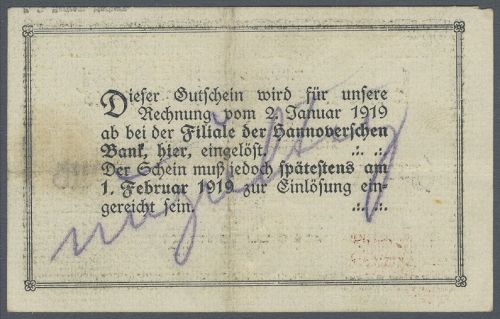 Dieser Gutschein wird für unsere
Rechnung vom 2. Januar 1919
ab bei der Filiale der Hannoverschen
Bank, hier, eingelöst.
Der Schein muß jedoch spätestens am
1. Februar 1919 zur Einlösung ein-
gereicht sein.
ungültig